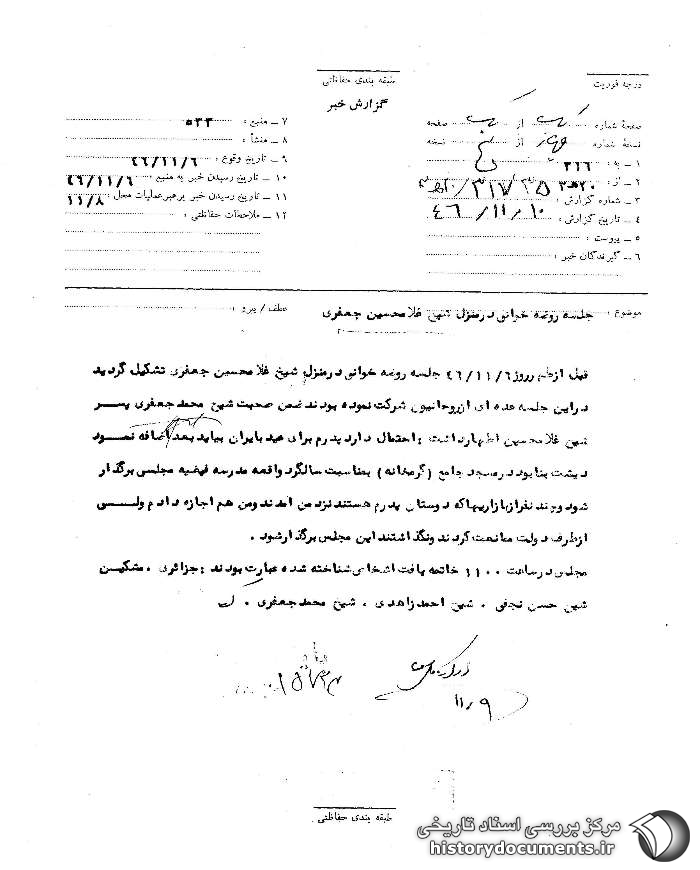 طبقه بندی حفاظتی
گزارش خبر
درجه فوریت
صفحهٔ شماره یک از یک صفحه
نسخهٔ شماره چهار از نسخه
۱ ــ به : ۳۱۶
۲ ــ از : ۲۰
۳ ــ شماره گزارش :
۴ ــ تاریخ گزارش : ۴۶/۱۱/۱۰
۵ ــ پیوست :
۶ ــ گیرندگان خبر :
۷ ــ منبع : ۵۳۳
۸ ــ منشأ :
۹ ــ تاریخ وقوع : ۴۶/۱۱/۶
۱۰ ــ تاریخ رسیدن خبر به منبع ۴۶/۱۱/۶
۱۱ ــ تاریخ رسیدن خبر برهبرعملیات محل ۱۱/۸
۱۲ ــ ملاحظات حفاظتی :
موضوع : جلسه روضه خوانی درمنزل شیخ غلامحسین جعفری
عطف / پیرو :
قبل ازظهرروز ۴۶/۱۱/۶ جلسه روضه خوانی درمنزل شیخ غلامحسین جعفری تشکیل گردید
دراین جلسه عده ای ازروحانیون شرکت نموده بودند ضمن صحبت شیخ محمد جعفری پسر
شیخ غلامحسین اظهارداشت : احتمال دارد پدرم برای عید بایران بیاید بعد اضافه نمود
دیشب بنابود درمسجد جامع ( گرمخانه ) بمناسبت سالگرد واقعه مدرسه فیضیه مجلسی برگذار
شود وچند نفرازبازاریهاکه دوستان پدرم هستند نزد من آمدند ومن هم اجازه دادم ولسی
ازطرف دولت ممانعت کردند ونگذاشتند این مجلس برگذارشود .
مجلس درساعت ۱۱۰۰ خاتمه یافت اشخاص شناخته شده عبارت بودند : جزائری ، مشکین
شیخ حسن نجفی . شیخ احمد زاهدی . شیخ محمد جعفری . ک
۱۱/۹
طبقه بندی حفاظتی
مرکز بررسی اسناد تاریخی
historydocuments.ir